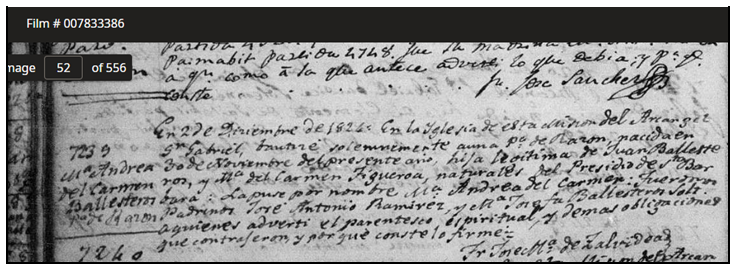 Film # 007833386
mage 52 of 556
Partida
Paimabit partida 4748. fue la madrina
a qn. como a la que antece adverti lo que debia; y pa. q.
conste Fr. Jose Sanchez
En 2 de Diziembre de 1824: En la Iglesia de esta Mision del Arcangel
7239 Sn. Gabriel, bautizé solemnemente a una pa. de Razon, nacida en
Ma. Andrea 30 de Noviembre del presente año, hija legitima de Juan Balleste
del Carmen ros, y Ma. del Carmen Figueroa, naturales del Presidio de Sta. Bar
Ballesteros bara: La puse por nombre Ma. Andrea del Carmen. Fueron
pa. de Razon Padrinos Jose Antonio Ramirez, y Ma. Ballesteros solt
a quienes adverti el parentesco espiritual, y demas obligaciones
que contrajeron, y por que conste lo firmé:
7240 Fr. Jose Ma. de Zalvidea